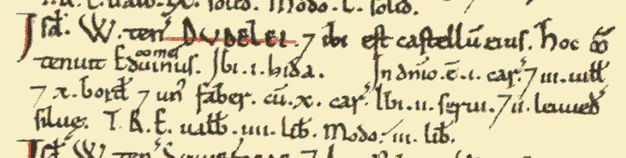 solid. Modo. L. solid.
Isd̄. W. ten̄ DUDELEI. ⁊ ibi est castellū eius. Hoc m̄
tenuit Eduuinus comes. Ibi .i. hida. In dn̄io .ē .i. car̄ ⁊ iii. uiłł
⁊ x. bord̄ ⁊ un̄ faber. cū .x. car̄. Ibi .ii. serui. ⁊ ii. leuued̄
siluę. T.R.E. ualb̄ .iiii. lib̄. Modo .iii. lib̄.
Isd̄. W. ten̄